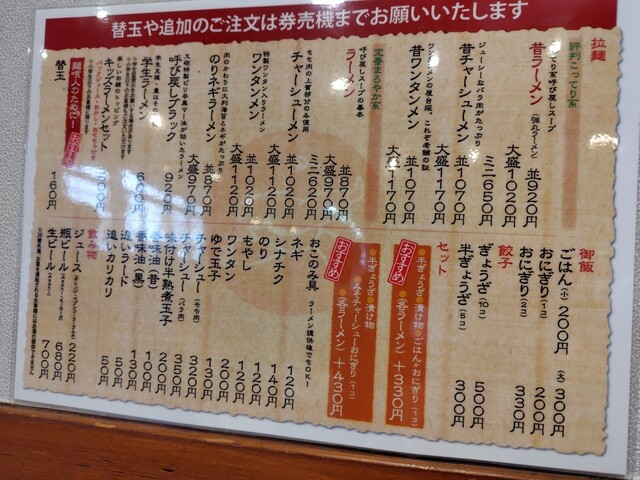 替玉や追加のご注文は券売機までお願いいたします
拉麺
評判こってり系
こってり系呼び戻しスープ
昔ラーメン（弾丸ラーメン）
並920円
大盛1020円
ミニ650円
ジューシーなバラ肉がたっぷり
昔チャーシューメン
並1070円
大盛1170円
ワンタンメンの屋台版。これぞ老舗の証
昔ワンタンメン
並1070円
大盛1170円
定番まろやか系
呼び戻しスープの基本
ラーメン
並870円
大盛970円
ミニ620円
モモ肉の上質部分のみ使用
チャーシューメン
並1020円
大盛1120円
特製ワンタン入りラーメン
ワンタンメン
並1020円
大盛1120円
肉のかわりに大判海苔とネギがたっぷり
のりネギラーメン
並870円
大盛970円
大砲特製ピリ辛黒マー油が効いたラーメン
呼び戻しブラック
920円
学生ラーメン
600円
キッズラーメンセット
麺喰い人のために…
おすすめ
替玉
160円
御飯
ごはん（小）200円（大）300円
おにぎり（1コ）200円
おにぎり（2コ）
餃子
ぎょうざ（10コ）500円
半ぎょうざ（5コ）300円
セット
おすすめ
●半ぎょうざ●漬け物●ごはんorおにぎり（1コ）
●（各ラーメン）+330円
おすすめ
●半ぎょうざ●漬け物
●みそチャーシューおにぎり（1コ）
●（各ラーメン）+430円
おこのみ具 ラーメン提供後でもOK！
ネギ 120円
シナチク 140円
のり 120円
もやし 120円
ワンタン 200円
ゆで玉子 130円
チャーシュー（モモ肉）320円
チャーシュー（バラ肉）350円
味付け半熟煮玉子 200円
香味油（昔）100円
香味油（黒）190円
追いラード 50円
追いカリカリ 50円
飲み物
ジュース 220円
瓶ビール 680円
生ビール 700円